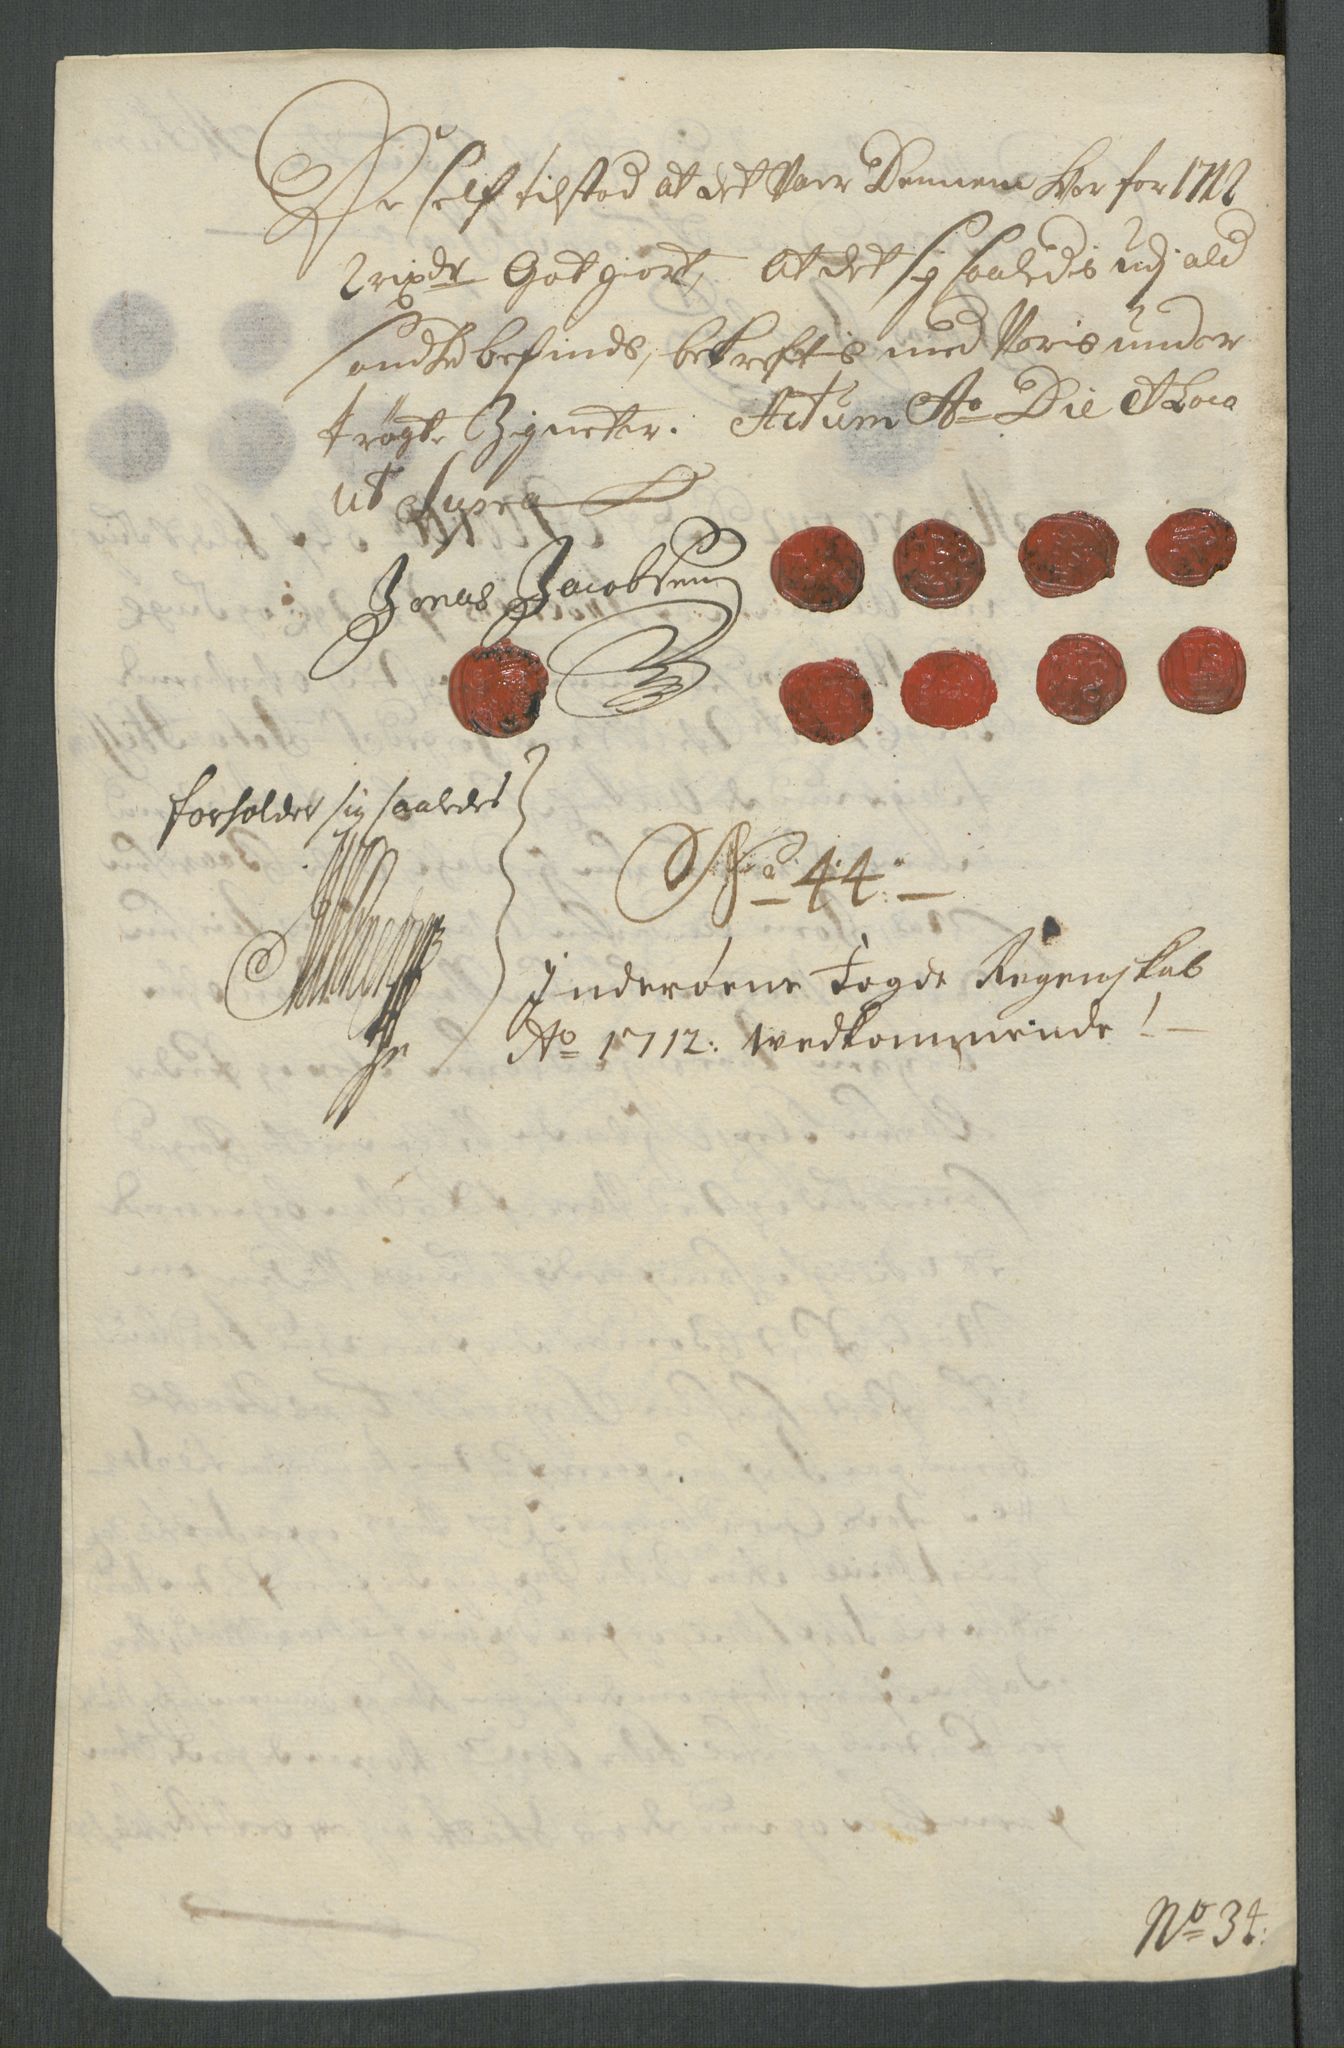 De self tilstod at det Vaar Dennem her for 1712
2 rixdr Got giort, At det sig saaledis udj ald
sandhed befinds, bekreftis med Voris under
trögte Zigneter. Actum Ao Die & Loco
ut Supra
Jonas Jacobsen
forholder sig saaledes
No 44:
Inderöens Fogde Regenskab
Ao 1712: wedkommende!
No 34: